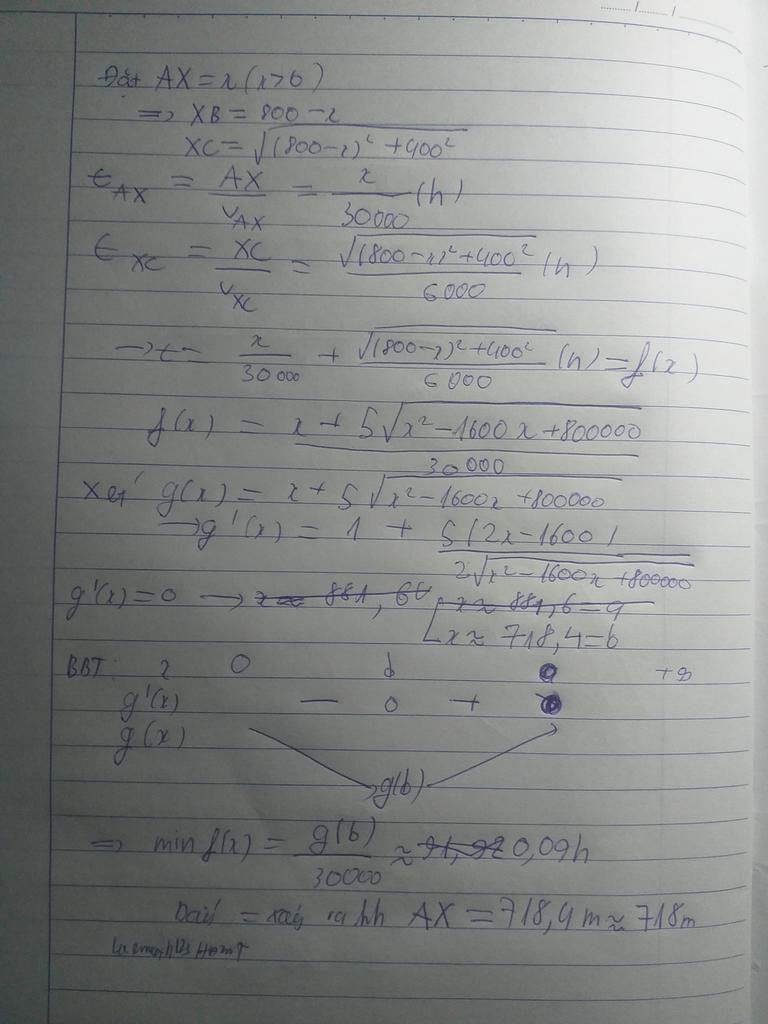 Đặt AX = x (x>0)
=> XB = 800 - x
XC = √((800-x)² + 400²)
t_AX = AX/v_AX = x/30000 (h)
t_XC = XC/v_XC = √((800-x)² + 400²)/6000 (h)
→ t = x/30000 + √((800-x)² + 400²)/6000 (h) = f(x)
f(x) = (x + 5√(x² - 1600x + 800000))/30000
Xét g(x) = x + 5√(x² - 1600x + 800000)
→ g'(x) = 1 + 5(2x - 1600)/(2√(x² - 1600x + 800000))
g'(x) = 0 → x ≈ 881,6 = a
[ x ≈ 718,4 = b
BBT: x 0 b +∞
g'(x) - 0 +
g(x)
g(b)
=> min f(x) = g(b)/30000 ≈ 0,09h
Dấu = xảy ra khi AX = 718,4 m ≈ 718m